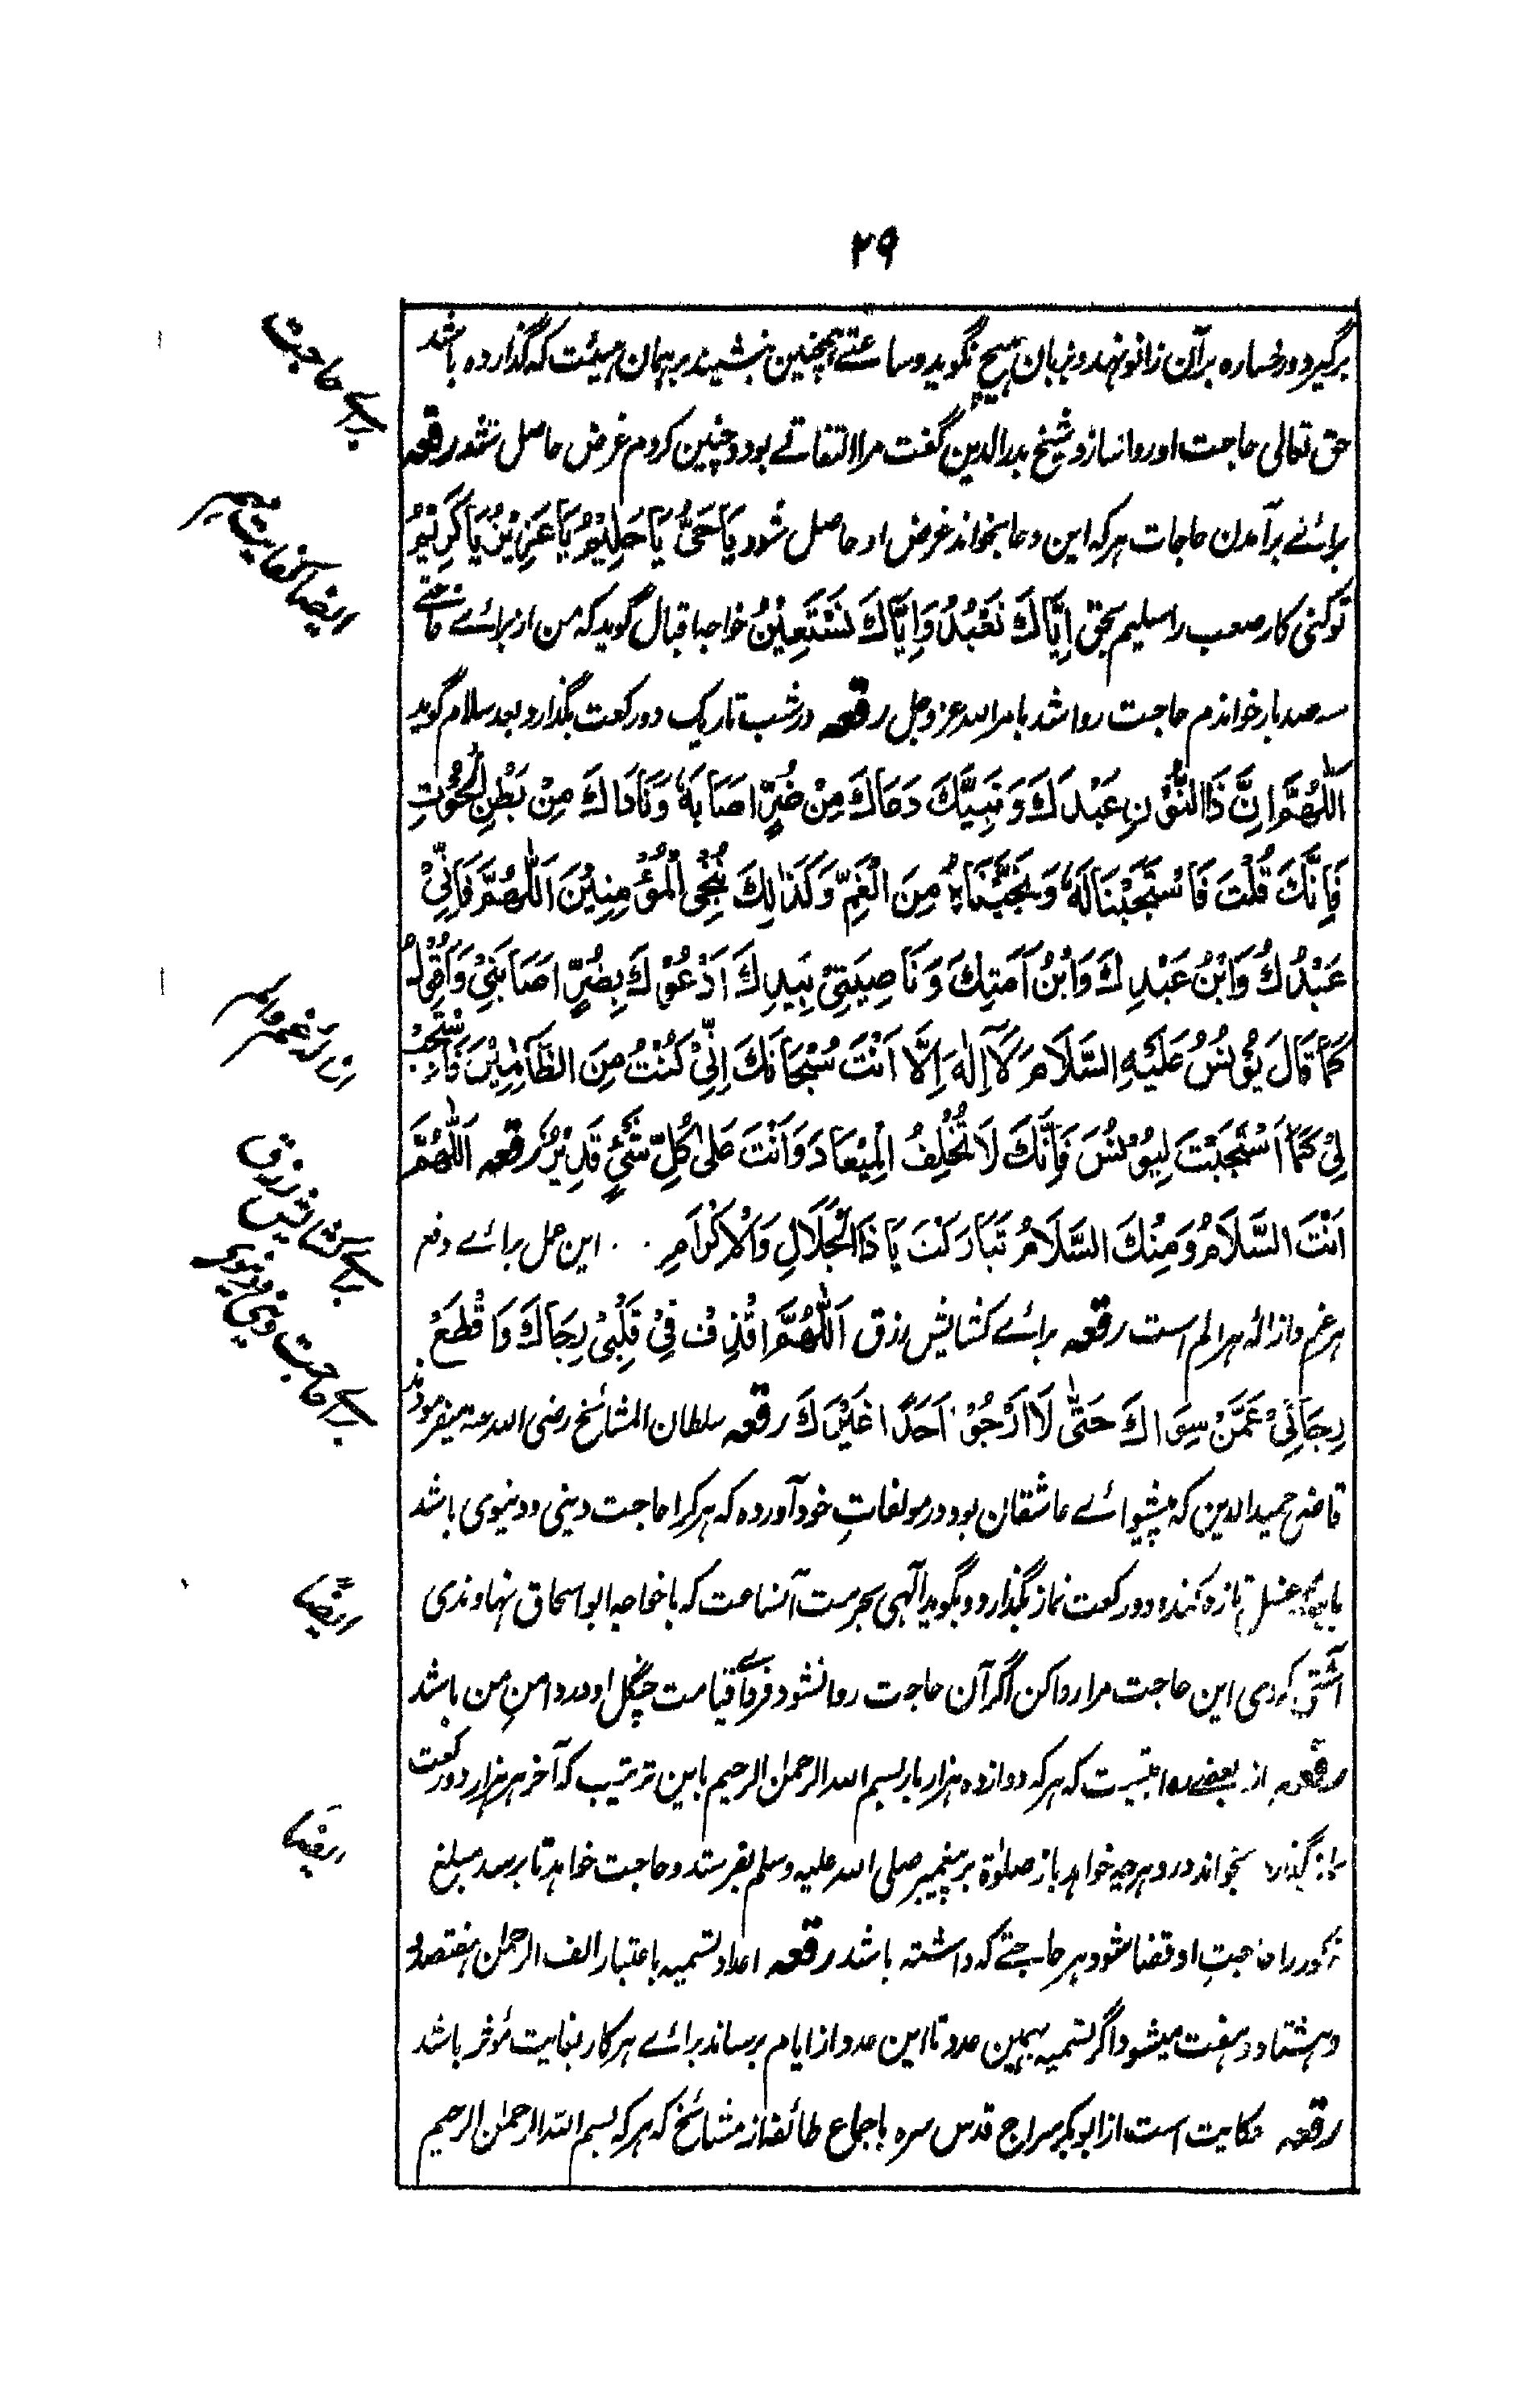 ۲۹
برگیرد و رخساره بر آن زانو نهد و بزبان هیچ نگوید و ساعتے همچنین بنشیند بر همان هیئت که گذارده باشد
حق تعالی حاجت او روا سازد شیخ بدرالدین گفت مرا اتفاقے بود و چنین کردم غرض حاصل شد رقعه
برائے برآمدن حاجات هر که این دعا بخواند غرض او حاصل شود یَا حَیُّ یَا حَلِیْمُ یَا عَزِیْزُ یَا کَرِیْمُ
تو کنی کار صعب را سلیم بحق اِیَّاكَ نَعْبُدُ وَاِیَّاكَ نَسْتَعِیْنُ خواجه اقبال گوید که من از برائے
سه صد بار خواندم حاجت روا شد بامر الله عز و جل رقعه در شب تاریک دو رکعت بگذارد و بعد سلام گوید
اَللّٰهُمَّ اِنَّ ذَا النُّوْنِ عَبْدَكَ وَ نَبِیَّكَ دَعَاكَ مِنْ ضُرٍّ اَصَابَهٗ وَنَادَاكَ مِنْ بَطْنِ الْحُوْتِ
فَاِنَّكَ قُلْتَ فَاسْتَجَبْنَا لَهٗ وَنَجَّیْنَاهُ مِنَ الْغَمِّ وَکَذٰلِكَ نُنْجِی الْمُؤْمِنِیْنَ اَللّٰهُمَّ فَاِنِّیْ
عَبْدُكَ وَابْنُ عَبْدِكَ وَابْنُ اَمَتِكَ وَنَاصِیَتِیْ بِیَدِكَ اَدْعُوْكَ بِضُرٍّ اَصَابَنِیْ وَاَقُوْلُ
کَمَا قَالَ یُوْنُسُ عَلَیْهِ السَّلَامُ لَآ اِلٰهَ اِلَّا اَنْتَ سُبْحَانَكَ اِنِّیْ کُنْتُ مِنَ الظَّالِمِیْنَ فَاسْتَجِبْ
لِیْ کَمَا اسْتَجَبْتَ لِیُوْنُسَ فَاِنَّكَ لَا تُخْلِفُ الْمِیْعَادَ وَاَنْتَ عَلٰی کُلِّ شَیْءٍ قَدِیْرٌ رقعه اَللّٰهُمَّ
اَنْتَ السَّلَامُ وَمِنْكَ السَّلَامُ تَبَارَکْتَ یَا ذَا الْجَلَالِ وَالْاِکْرَامِ . . این عمل برائے دفع
هر غم و ازاله هر الم است رقعه برائے کشایش رزق اَللّٰهُمَّ اقْذِفْ فِیْ قَلْبِیْ رِجَاكَ وَاقْطَعْ
رِجَائِیْ عَمَّنْ سِوَاكَ حَتّٰی لَا اَرْجُوْ اَحَدًا غَیْرَكَ رقعه سلطان المشائخ رضی الله عنه میفرمودند
قاضی حمیدالدین که پیشوائے عاشقان بود در مولفاتِ خود آورده که هر کرا حاجت دینی و دنیوی باشد
باید غسل تازه کند و دو رکعت نماز بگذارد و بگوید الٰهی بحرمت آنساعت که با خواجه ابو اسحاق نهاوندی
آشتی کردی این حاجت مرا روا کن اگر آن حاجت روا نشود فردائے قیامت چنگل او و دامنِ من باشد
رقعه از بعضے که هر که دوازده هزار بار بسم الله الرحمٰن الرحیم باین ترتیب که آخر هر هزار دو رکعت
بگذارد بخواند درو هرچه خواهد باز صلوٰة بر پیغمبر صلی الله علیه وسلم بفرستد و حاجت خواهد تا برسد مبلغ
مذکور را حاجتِ او قضا شود هر حاجتے که داشته باشد رقعه اعداد تسمیه باعتبار الف الرحمٰن هفتصد و
و هشتاد و هفت میشود اگر تسمیه بهمین عدد تا این عدد از ایام برساند برائے هر کار بغایت مؤثر باشد
رقعه حکایت است از ابوبکر سراج قدس سره باجماع طائفه از مشائخ که هر که بسم الله الرحمٰن الرحیم
برائے حاجت
ایضا کفایت مهم
ازاله غم و الم
برائے کشایش رزق
برائے حاجت دینی و دنیوی
ایضًا
ایضًا